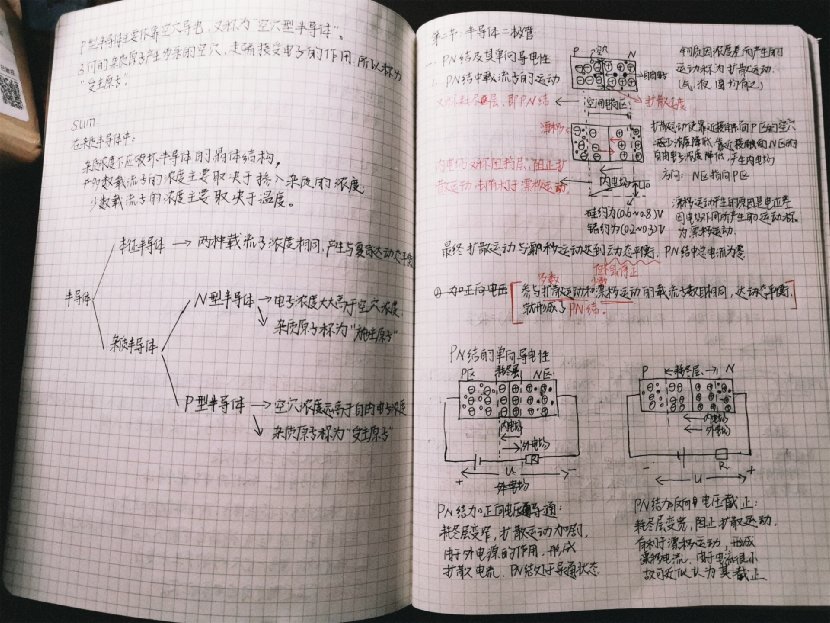 P型半导体主要依靠空穴导电，又称为"空穴型半导体"。
"受主原子"
sum
在杂质半导体中：
杂质浓度不应破坏半导体的晶体结构，
多数载流子的浓度主要取决于掺入杂质的浓度
少数载流子的浓度主要取决于温度。
半导体
本征半导体 → 两种载流子浓度相同，产生与复合达动态平衡
杂质半导体
N型半导体 → 电子浓度大大高于空穴浓度
杂质原子称为"施主原子"
P型半导体 → 空穴浓度远高于自由电子浓度
杂质原子称为"受主原子"
第二节 半导体二极管
一、PN结及其单向导电性
1. PN结中载流子的运动
又称耗尽层，即PN结
P 空穴 N
自由电子
空间电荷区
扩散运动
运动称为扩散运动
漂移
内电场又称阻挡层，阻止扩
散运动，有利于漂移运动
内电场
硅约为(0.6~0.8)V
锗约为(0.2~0.3)V
扩散运动使靠近接触面P区的空穴
浓度降低、靠近接触面N区的
自由电子浓度降低，产生内电场
方向：N区指向P区
漂移运动产生的原因是电位差
为漂移运动。
最终扩散运动与漂移运动达到动态平衡，PN结中总电流为零
多数
少数
但不停止
① 加正向电压
参与扩散运动和漂移运动的载流子数目相同，达动态平衡，
就形成了PN结。
PN结的单向导电性
P区 耗尽层 N区
内电场
外电场
R
+ ← U → −
外电场
PN结加正向电压导通：
耗尽层变窄，扩散运动加剧，
由于外电源的作用，形成
扩散电流，PN结处于导通状态
P ←耗尽层→ N
内电场
外电场
R
− ← U → +
PN结加反向电压截止：
耗尽层变宽，阻止扩散运动，
有利于漂移运动，形成
漂移电流，由于电流很小
故可近似认为其截止